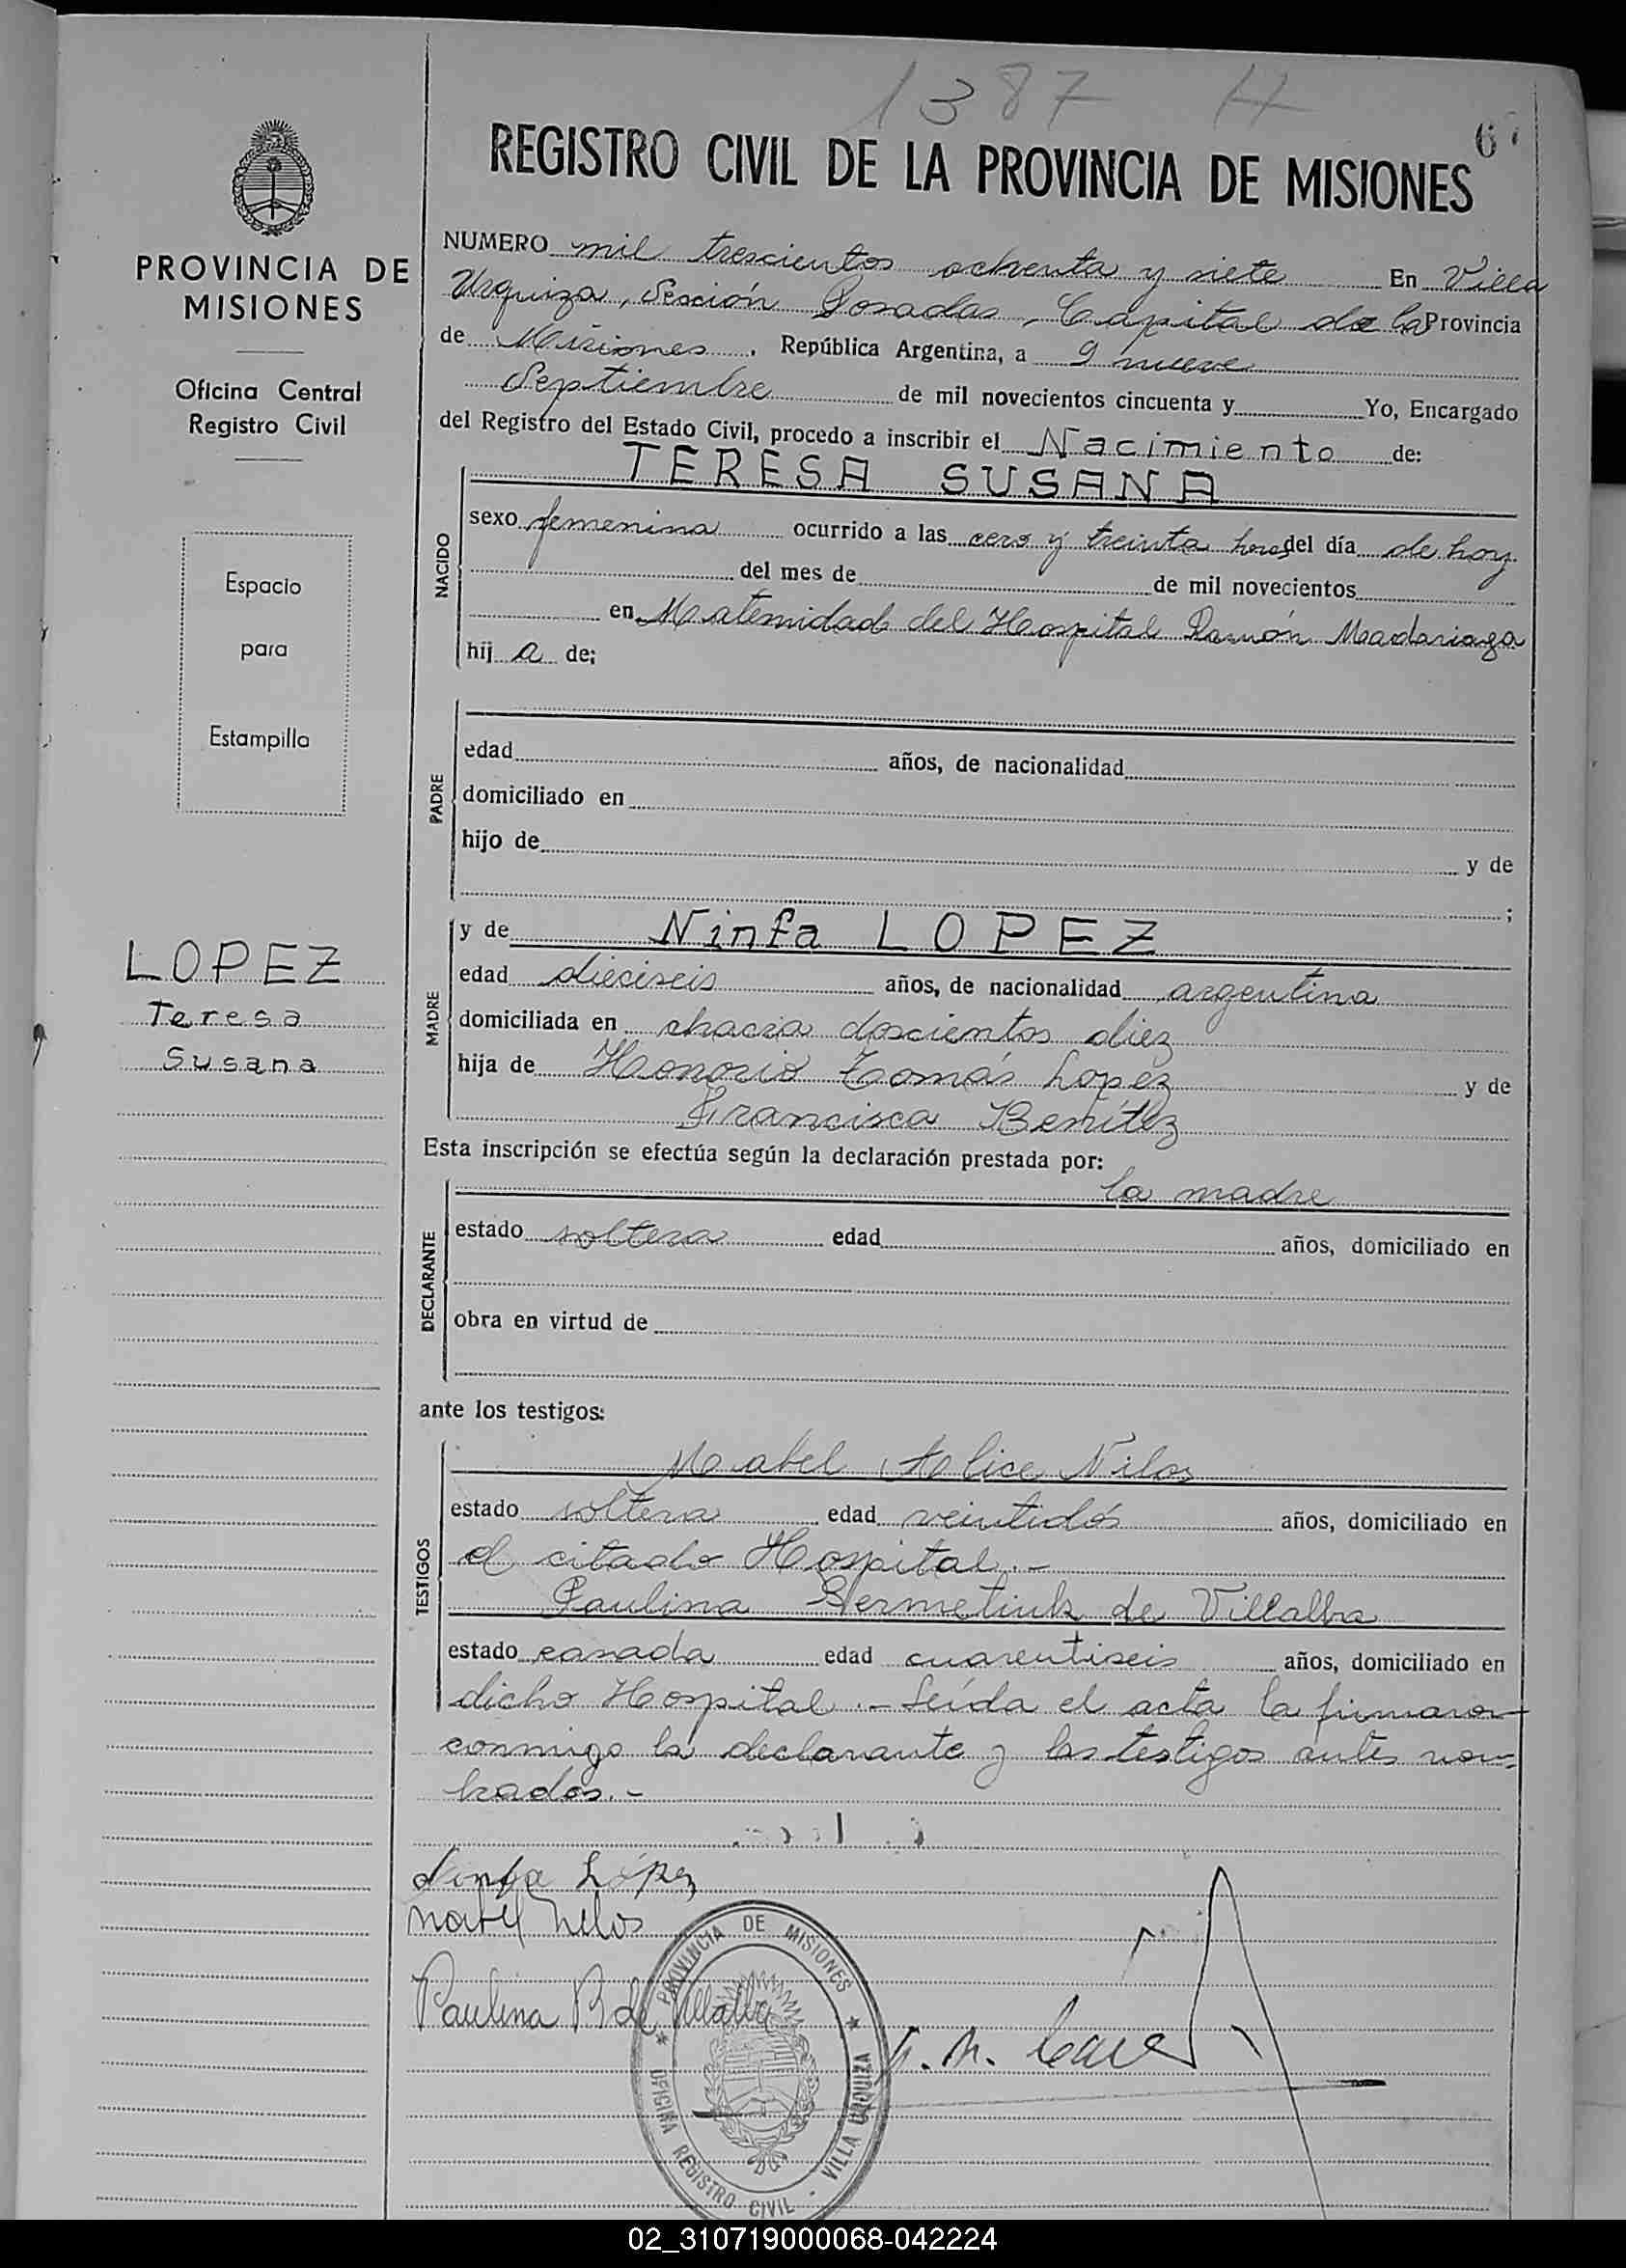 1387 H
6
REGISTRO CIVIL DE LA PROVINCIA DE MISIONES
PROVINCIA DE
MISIONES
Oficina Central
Registro Civil
Espacio
para
Estampilla
LOPEZ
Teresa
Susana
NUMERO mil trescientos ochenta y siete En Villa
Urquiza, Sección Posadas, Capital de la Provincia
de Misiones, República Argentina, a 9 nueve
Septiembre de mil novecientos cincuenta y Yo, Encargado
del Registro del Estado Civil, procedo a inscribir el Nacimiento de:
TERESA SUSANA
NACIDO
sexo femenina ocurrido a las cero y treinta horas del día de hoy
del mes de de mil novecientos
en Maternidad del Hospital Ramón Madariaga
hij a de;
PADRE
edad años, de nacionalidad
domiciliado en
hijo de y de
;
MADRE
y de Ninfa LOPEZ
edad dieciseis años, de nacionalidad argentina
domiciliada en chacra doscientos diez
hija de Honorio Tomás Lopez y de
Francisca Benítez
Esta inscripción se efectúa según la declaración prestada por:
DECLARANTE
la madre
estado soltera edad años, domiciliado en
obra en virtud de
ante los testigos:
TESTIGOS
Mabel Alice Nilos
estado soltera edad veintidós años, domiciliado en
el citado Hospital.-
Paulina de Villalba
estado casada edad cuarentiseis años, domiciliado en
dicho Hospital.- Leída el acta la firmaron
conmigo la declarante y los testigos antes nom=
brados.-
Ninfa López
Mabel Nilos
Paulina B de Villalba
PROVINCIA DE MISIONES
OFICINA REGISTRO CIVIL - VILLA URQUIZA
02_310719000068-042224